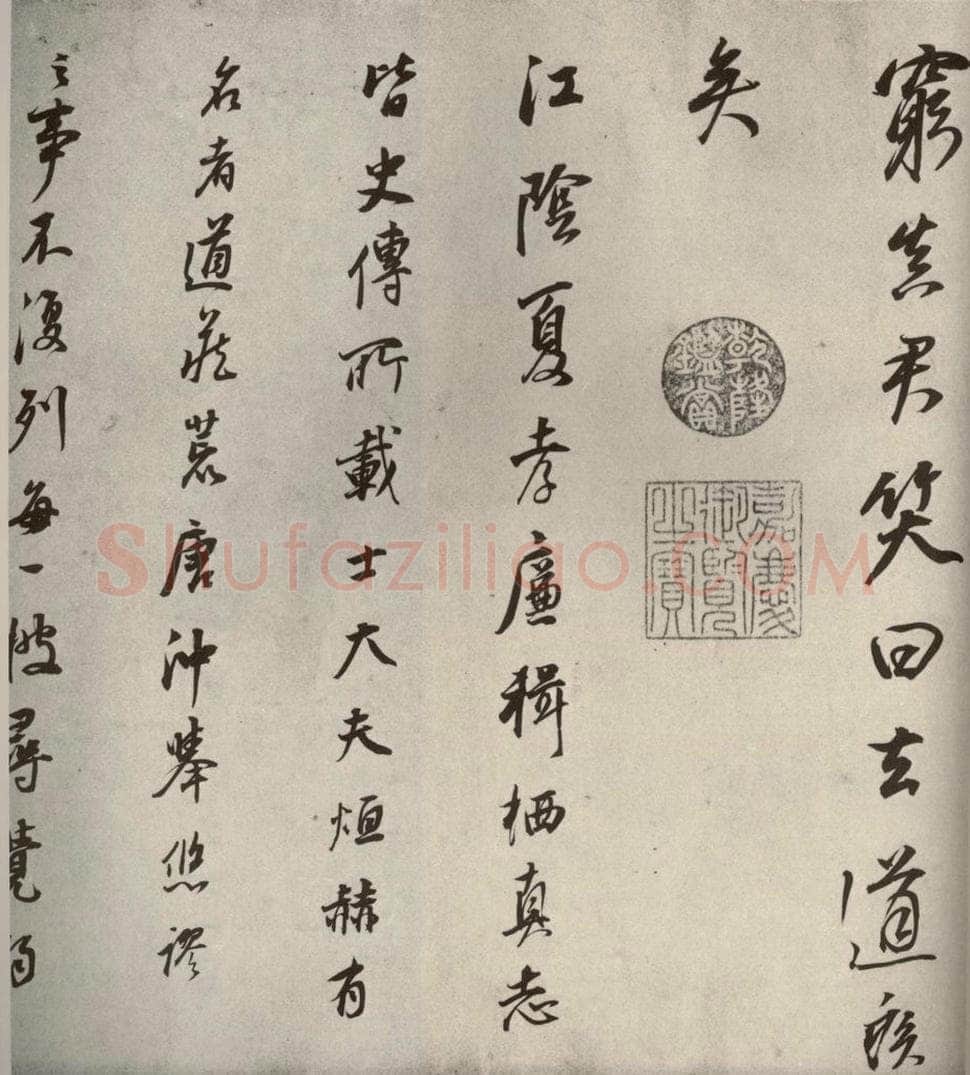 窮真君笑曰去道
矣
乾隆
鑑賞
嘉慶
御覽
之寶
江陰夏孝廉輯栖真志
皆史傳所載士大夫烜赫有
名者道藏荒唐冲舉悠謬
之事不復列每一披尋覺
Shufaziliao.COM